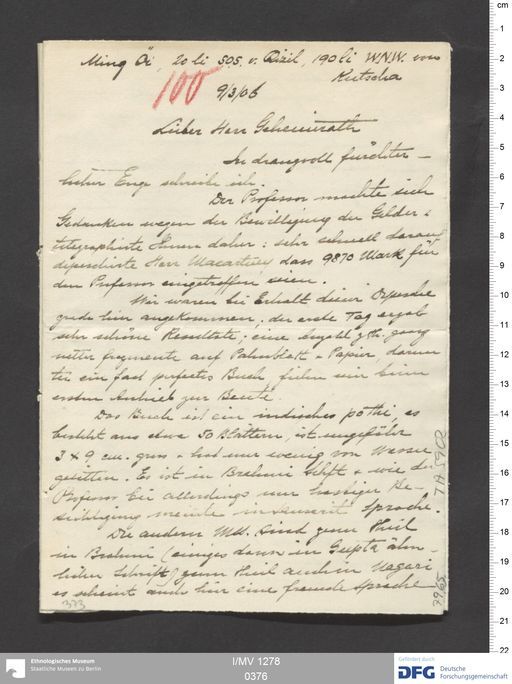 Ming Öi, 20 li SOS. v. Qizil, 190 li WNW. von
Kutscha
100
9/3/06
Lieber Herr Geheimrath
In drangvoll fürchter-
licher Enge schreibe ich.
Der Professor machte sich
Gedanken wegen der Bewilligung der Gelder +
telegraphirte Ihnen daher: sehr schnell darauf
depeschirte Herr Macartney dass 9870 Mark für
den Professor eingetroffen seien.
Wir waren bei Erhalt dieser Depesche
grade hier angekommen; der erste Tag ergab
sehr schöne Resultate; eine Anzahl z. th. ganz
netter fragmente auf Palmblatt + Papier, darun
ter ein fast perfectes Buch, fielen uns beim
ersten Anhieb zur Beute.
Das Buch ist ein indisches pothi, es
besteht aus etwa 50 Blättern, ist ungefähr
3 x 9 cm. gross + hat nur wenig von Wasser
gelitten. Es ist in Brahmi Schft + wie der
Professor bei allerdings nur hastiger Be-
sichtigung meinte in Sanscrit Sprache.
Die anderen MSS. sind zum Theil
in Brahmi (einiges davon in Gupta ähn-
licher Schrift) zum Theil auch in Nagari
es scheint auch hier eine fremde Sprache
373
TA 5902
79/65
Ethnologisches Museum
Staatliche Museen zu Berlin
I/MV 1278
0376
Gefördert durch
DFG Deutsche
Forschungsgemeinschaft
cm
1
2
3
4
5
6
7
8
9
10
11
12
13
14
15
16
17
18
19
20
21
22